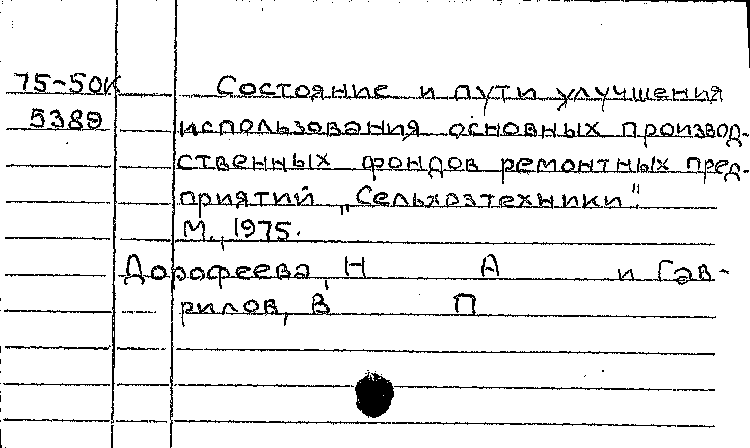 75-50К Состояние и пути улучшения
5389 использования основных производ-
ственных фондов ремонтных пред-
приятий „Сельхозтехники".
М., 1975.
Дорофеева, Н А и Гав-
рилов, В П